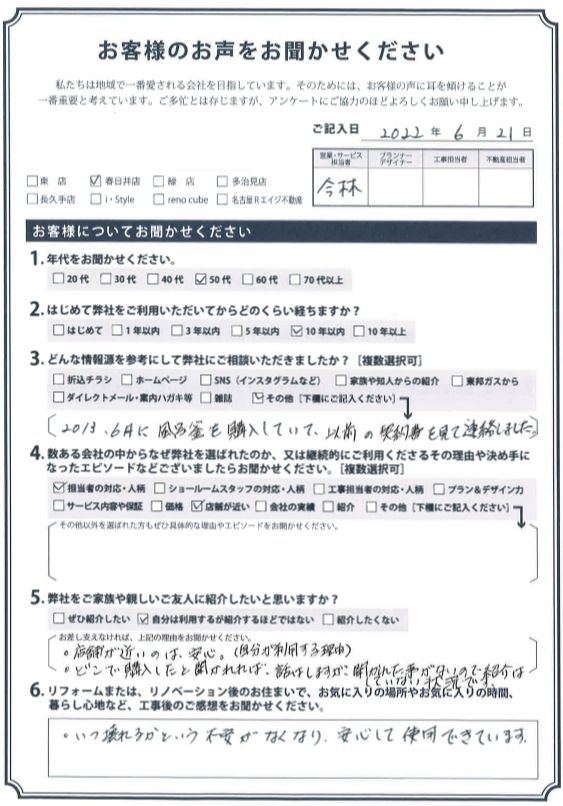 お客様のお声をお聞かせください
私たちは地域で一番愛される会社を目指しています。そのためには、お客様の声に耳を傾けることが
一番重要と考えています。ご多忙とは存じますが、アンケートにご協力のほどよろしくお願い申し上げます。
ご記入日 2022 年 6 月 21 日
営業・サービス担当者 プランナーデザイナー 工事担当者 不動産担当者
今林
□東 店 ☑春日井店 □緑 店 □多治見店
□長久手店 □i・Style □reno cube □名古屋Rエイジ不動産
お客様についてお聞かせください
1.年代をお聞かせください。
□20代 □30代 □40代 ☑50代 □60代 □70代以上
2.はじめて弊社をご利用いただいてからどのくらい経ちますか？
□はじめて □1年以内 □3年以内 □5年以内 ☑10年以内 □10年以上
3.どんな情報源を参考にして弊社にご相談いただきましたか？［複数選択可］
□折込チラシ □ホームページ □SNS（インスタグラムなど） □家族や知人からの紹介 □東邦ガスから
□ダイレクトメール・案内ハガキ等 □雑誌 ☑その他［下欄にご記入ください］
2013.6月に風呂釜を購入していて、以前の契約書を見て連絡しました。
4.数ある会社の中からなぜ弊社を選ばれたのか、又は継続的にご利用くださるその理由や決め手に
なったエピソードなどございましたらお聞かせください。［複数選択可］
☑担当者の対応・人柄 □ショールームスタッフの対応・人柄 □工事担当者の対応・人柄 □プラン&デザイン力
□サービス内容や保証 □価格 ☑店舗が近い □会社の実績 □紹介 □その他［下欄にご記入ください］
その他以外を選ばれた方もぜひ具体的な理由やエピソードをお聞かせください。
5.弊社をご家族や親しいご友人に紹介したいと思いますか？
□ぜひ紹介したい ☑自分は利用するが紹介するほどではない □紹介したくない
お差し支えなければ、上記の理由をお聞かせください。
・店舗が近いのは、安心。(自分が利用する理由)
・どこで購入したと聞かれれば、話はしますが、聞かれた事がないので紹介は
していない状況です。
6.リフォームまたは、リノベーション後のお住まいで、お気に入りの場所やお気に入りの時間、
暮らし心地など、工事後のご感想をお聞かせください。
・いつ壊れるかという不安がなくなり、安心して使用できています。